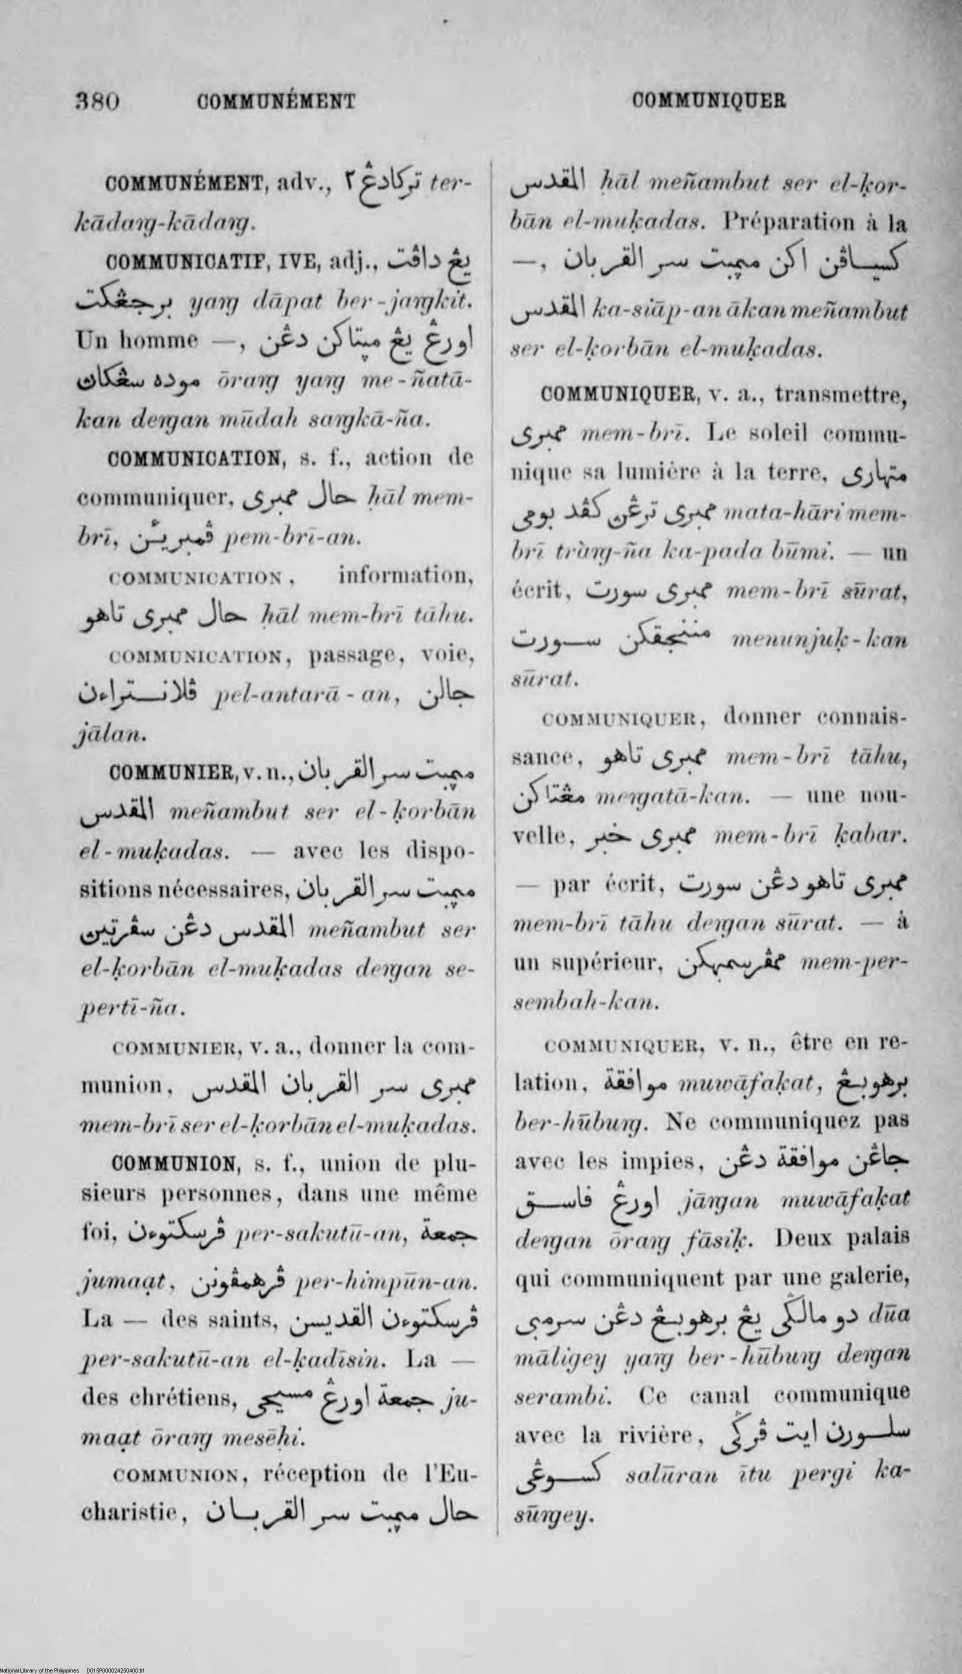 380 COMMUNÉMENT COMMUNIQUER
COMMUNÉMENT, adv., تركادڠ ٢ ter-
kādaŋ-kādaŋ.
COMMUNICATIF, IVE, adj., يڠ داڤت
برجڠكت yaŋ dāpat ber-jaŋkit.
Un homme —, اورڠ يڠ مڽتاكن دڠن
موده سڠكاڽ ōraŋ yaŋ me-ñatā-
kan deŋan mūdah saŋkā-ña.
COMMUNICATION, s. f., action de
communiquer, حال ممبري ḥāl mem-
brī, ڤمبريئن pem-brī-an.
COMMUNICATION, information,
حال ممبري تاهو ḥāl mem-brī tāhu.
COMMUNICATION, passage, voie,
ڤلانتراءن pel-antarā-an, جالن
jālan.
COMMUNIER, v. n., مڽمبت سر القربان
المقدس meñambut ser el-ḳorbān
el-muḳadas. — avec les dispo-
sitions nécessaires, مڽمبت سر القربان
المقدس دڠن سڤرتين meñambut ser
el-ḳorbān el-muḳadas deŋan se-
pertī-ña.
COMMUNIER, v. a., donner la com-
munion, ممبري سر القربان المقدس
mem-brī ser el-ḳorbān el-muḳadas.
COMMUNION, s. f., union de plu-
sieurs personnes, dans une même
foi, ڤرسكتوءن per-sakutū-an, جمعة
jumaạt, ڤرهمڤونن per-himpūn-an.
La — des saints, ڤرسكتوءن القديسن
per-sakutū-an el-ḳadīsin. La —
des chrétiens, جمعة اورڠ مسيحي ju-
maạt ōraŋ mesēhi.
COMMUNION, réception de l'Eu-
charistie, حال مڽمبت سر القربان
المقدس ḥāl meñambut ser el-ḳor-
bān el-muḳadas. Préparation à la
—, كسياڤن اكن مڽمبت سر القربان
المقدس ka-siāp-an ākan meñambut
ser el-ḳorbān el-muḳadas.
COMMUNIQUER, v. a., transmettre,
ممبري mem-brī. Le soleil commu-
nique sa lumière à la terre, متهاري
ممبري ترڠن كڤد بومي mata-hāri mem-
brī tràŋ-ña ka-pada būmi. — un
écrit, ممبري سورت mem-brī sūrat,
مننجقكن سورت menunjuḳ-kan
sūrat.
COMMUNIQUER, donner connais-
sance, ممبري تاهو mem-brī tāhu,
مڠتاكن meŋatā-kan. — une nou-
velle, ممبري خبر mem-brī ḳabar.
— par écrit, ممبري تاهو دڠن سورت
mem-brī tāhu deŋan sūrat. — à
un supérieur, ممڤرسمبهكن mem-per-
sembah-kan.
COMMUNIQUER, v. n., être en re-
lation, موافقة muwāfaḳat, برهوبڠ
ber-hūbuŋ. Ne communiquez pas
avec les impies, جاڠن موافقة دڠن
اورڠ فاسق jāŋan muwāfaḳat
deŋan ōraŋ fāsiḳ. Deux palais
qui communiquent par une galerie,
دو مالڬي يڠ برهوبڠ دڠن سرمبي dūa
māligey yaŋ ber-hūbuŋ deŋan
serambi. Ce canal communique
avec la rivière, سلورن ايت ڤرڬي
كسوڠي salūran ītu pergi ka-
sūŋey.